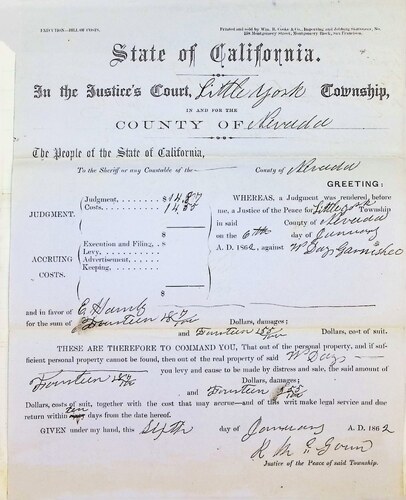 EXECUTION—BILL OF COSTS.
Printed and sold by Wm. B. Cooke & Co., Importing and Jobbing Stationers, No. Montgomery Street, Montgomery Block, San Francisco.
State of California.
In the Justice's Court, Little York Township,
IN AND FOR THE
COUNTY OF Nevada
The People of the State of California,
To the Sheriff or any Constable of the County of Nevada
GREETING:
JUDGMENT. Judgment, $
Costs, $
ACCRUING COSTS. Execution and Filing, $
Levy,
Advertisement,
Keeping,
$
$
WHEREAS, a Judgment was rendered before
me, a Justice of the Peace for Little York Township
in said County of Nevada
on the 6th day of January
A. D. 1862, against W Days Garnishee
and in favor of E
for the sum of Fourteen 87/100 Dollars, damages;
and Fourteen 55/100 Dollars, cost of suit.
THESE ARE THEREFORE TO COMMAND YOU, That out of the personal property, and if suf-
ficient personal property cannot be found, then out of the real property of said W Days
you levy and cause to be made by distress and sale, the said amount of
Fourteen 87/100 Dollars, damages;
and Fourteen 55/100
Dollars, costs of suit, together with the cost that may accrue—and of this writ make legal service and due
return within ten days from the date hereof.
GIVEN under my hand, this Sixth day of January A. D. 1862
Justice of the Peace of said Township.